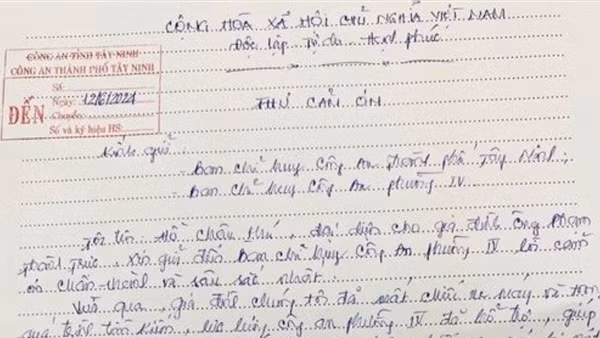 CỘNG HÒA XÃ HỘI CHỦ NGHĨA VIỆT NAM
Độc lập Tự do Hạnh phúc
CÔNG AN TỈNH TÂY NINH
CÔNG AN THÀNH PHỐ TÂY NINH
ĐẾN
Số:
Ngày: 12/6/2021
Chuyển:
Số và ký hiệu HS:
THƯ CẢM ƠN
Kính gửi:
- Ban chỉ huy Công An thành phố Tây Ninh;
- Ban chỉ huy Công An phường IV
Tôi tên: Hồ Châu, đại diện cho gia đình ông Phạm
Thành Trực, Xin gửi đến Ban chỉ huy Công An phường IV lời cảm
ơn chân thành và sâu sắc nhất.
Vừa qua, gia đình chúng tôi đã mất chiếc xe máy và trong
quá trình tìm kiếm, lực lượng công an phường IV đã hỗ trợ, giúp